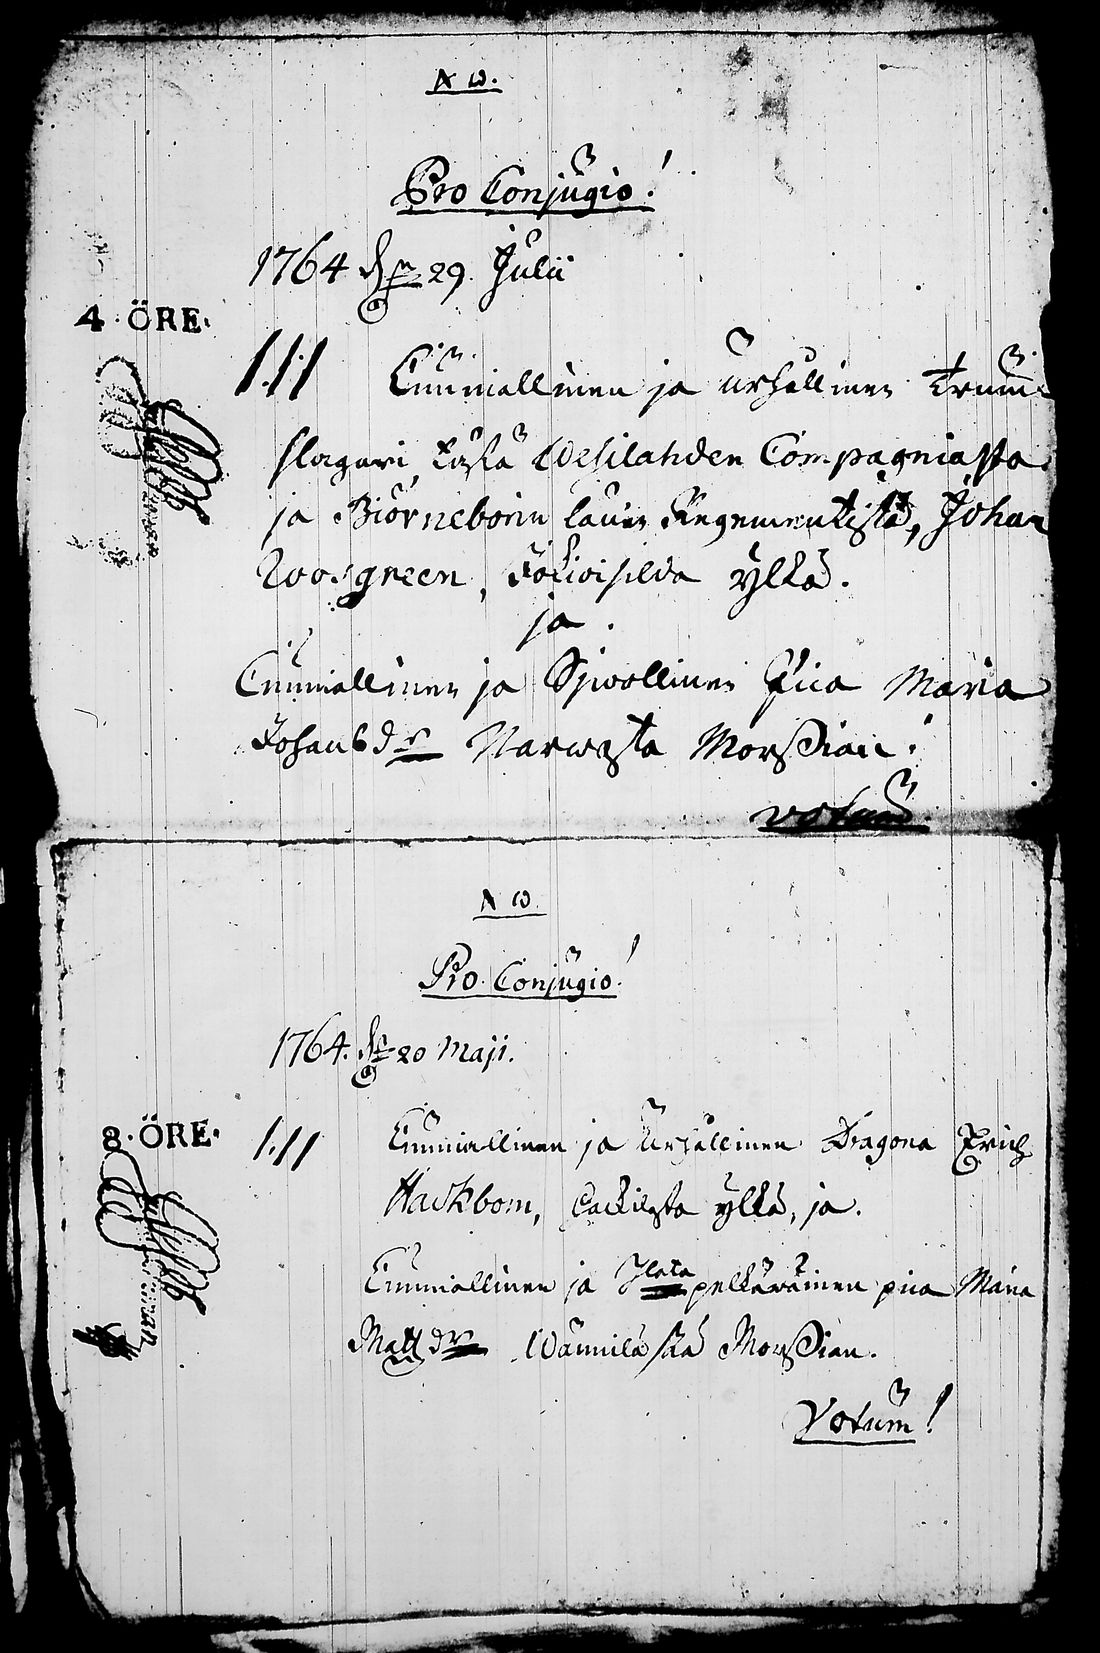 A ω.
Pro Conjugio!
1764 d. 29. Julii
4. ÖRE.
1.11 Cunniallinen ja urhallinen Trum-
slagari tästä Wesilahden Compagniasta
ja Biörneborin länin Regementistä, Johan
Roosgreen, Jokioisilda ylkä.
ja.
Cunniallinen ja Sjwollinen Pica Maria
Johansdr Narwasta Morsian.
votum.
A ω.
Pro. Conjugio!
1764. d. 20 Maji.
8. ÖRE.
1.11 Cunniallinen ja Urhallinen Dragona Erich
Hackbom, ylkä, ja.
Cunniallinen ja Jlata pelkäwäinen pica Maria
Mattsdr Wännilästä Morsian.
Votum!